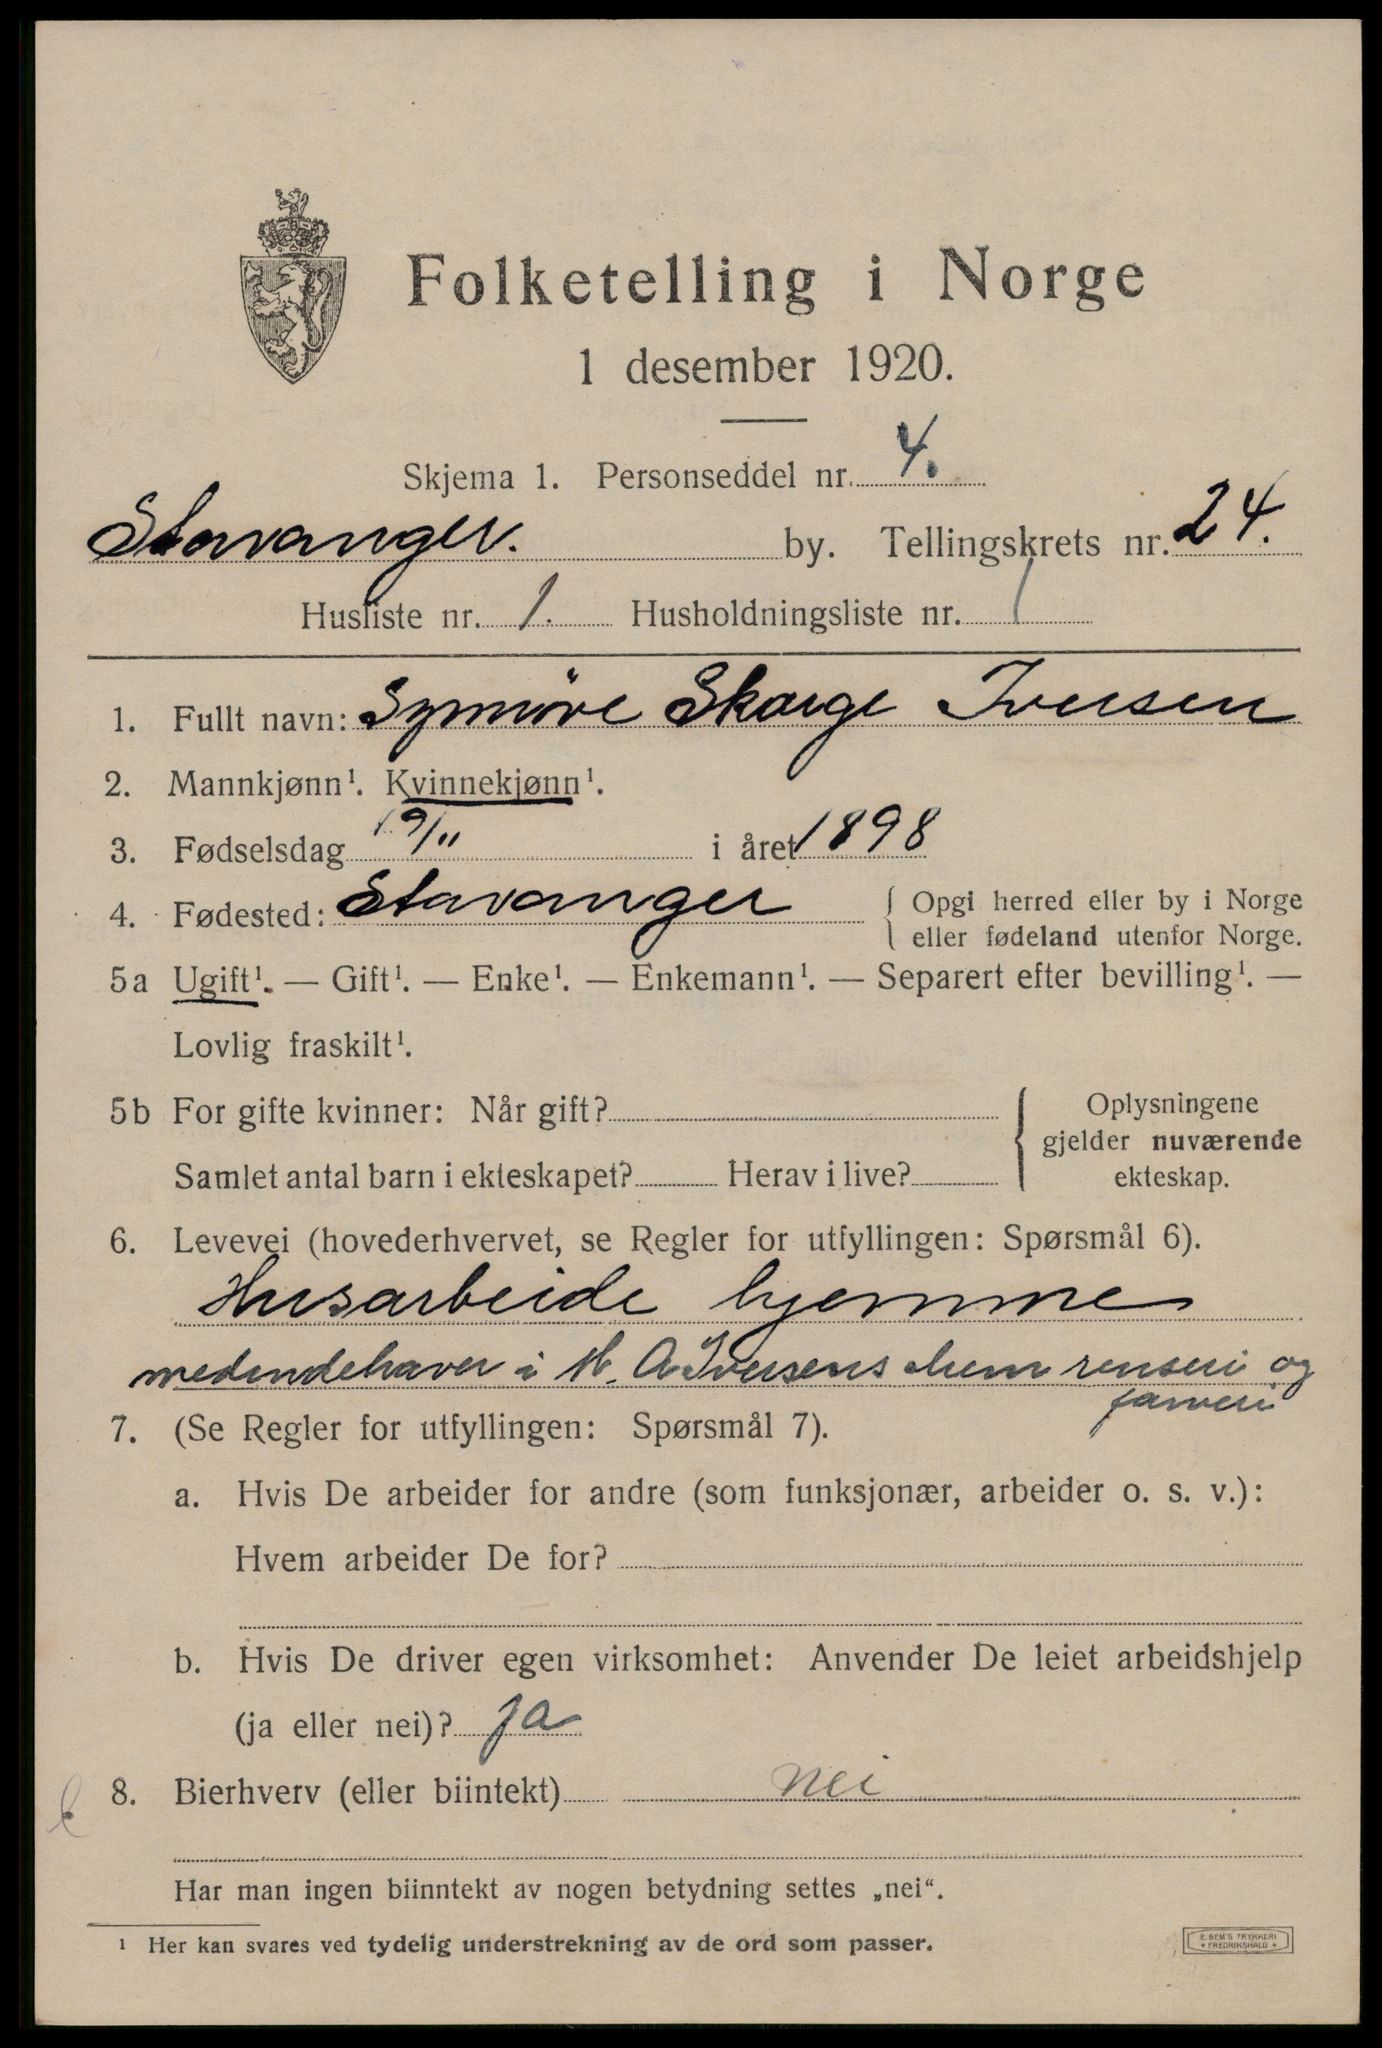 Folketelling i Norge
1 desember 1920.
Skjema 1. Personseddel nr. 4.
Stavanger. by. Tellingskrets nr. 24.
Husliste nr. 1. Husholdningsliste nr. 1
1. Fullt navn: Synnöve Skauge Iversen
2. Mannkjønn¹. Kvinnekjønn¹.
3. Fødselsdag 19/11 i året 1898
4. Fødested: Stavanger { Opgi herred eller by i Norge
eller fødeland utenfor Norge.
5a Ugift¹. — Gift¹. — Enke¹. — Enkemann¹. — Separert efter bevilling¹. —
Lovlig fraskilt¹.
5b For gifte kvinner: Når gift? { Oplysningene
gjelder nuværende
Samlet antal barn i ekteskapet? Herav i live? ekteskap.
6. Levevei (hovederhvervet, se Regler for utfyllingen: Spørsmål 6).
Husarbeide hjemme
medindehaver i M. A Iversens chem renseri og
farveri
7. (Se Regler for utfyllingen: Spørsmål 7).
a. Hvis De arbeider for andre (som funksjonær, arbeider o. s. v.):
Hvem arbeider De for?
b. Hvis De driver egen virksomhet: Anvender De leiet arbeidshjelp
(ja eller nei)? ja
8. Bierhverv (eller biintekt) nei
Har man ingen biinntekt av nogen betydning settes „nei“.
¹ Her kan svares ved tydelig understrekning av de ord som passer.
E. SEM'S TRYKKERI
• FREDRIKSHALD •